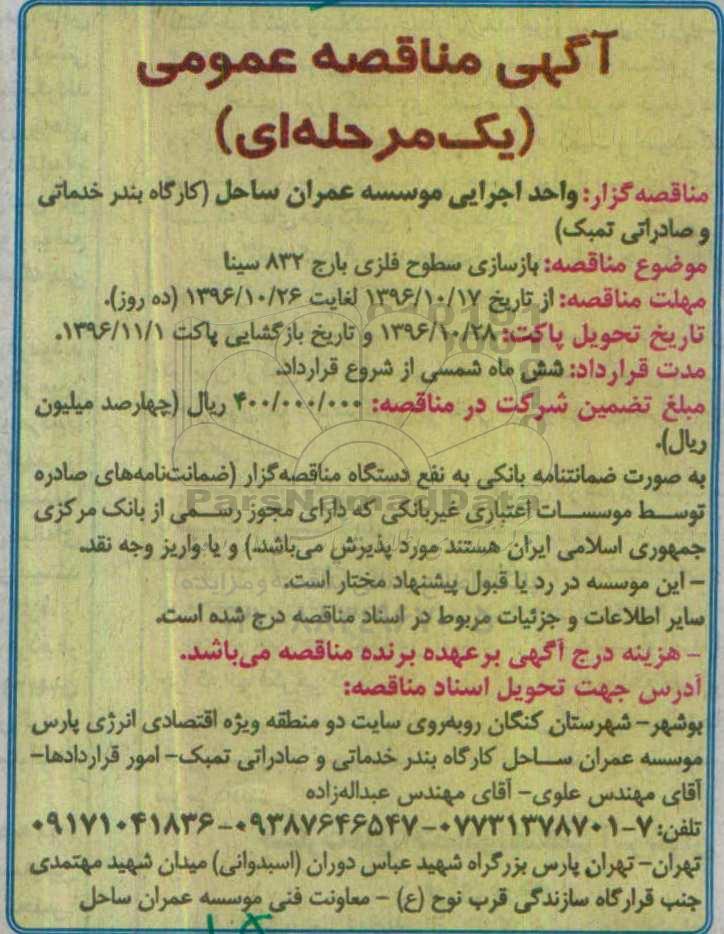 آگهی مناقصه عمومی
(یک‌مرحله‌ای)
مناقصه‌گزار: واحد اجرایی موسسه عمران ساحل (کارگاه بندر خدماتی
و صادراتی تمبک)
موضوع مناقصه: بازسازی سطوح فلزی بارج ۸۳۲ سینا
مهلت مناقصه: از تاریخ ۱۳۹۶/۱۰/۱۷ لغایت ۱۳۹۶/۱۰/۲۶ (ده روز).
تاریخ تحویل پاکت: ۱۳۹۶/۱۰/۲۸ و تاریخ بازگشایی پاکت ۱۳۹۶/۱۱/۱.
مدت قرارداد: شش ماه شمسی از شروع قرارداد.
مبلغ تضمین شرکت در مناقصه: ۴۰۰/۰۰۰/۰۰۰ ریال (چهارصد میلیون
ریال).
به صورت ضمانتنامه بانکی به نفع دستگاه مناقصه‌گزار (ضمانت‌نامه‌های صادره
توسط موسسات اعتباری غیربانکی که دارای مجوز رسمی از بانک مرکزی
ParsNamadData
جمهوری اسلامی ایران هستند مورد پذیرش می‌باشد) و یا واریز وجه نقد.
- این موسسه در رد یا قبول پیشنهاد مختار است.
سایر اطلاعات و جزئیات مربوط در اسناد مناقصه درج شده است.
- هزینه درج آگهی برعهده برنده مناقصه می‌باشد.
آدرس جهت تحویل اسناد مناقصه:
بوشهر- شهرستان کنگان روبه‌روی سایت دو منطقه ویژه اقتصادی انرژی پارس
موسسه عمران ساحل کارگاه بندر خدماتی و صادراتی تمبک- امور قراردادها-
آقای مهندس علوی- آقای مهندس عبداله‌زاده
تلفن: ۷-۰۷۷۳۱۳۷۸۷۰۱-۰۹۳۸۷۶۴۶۵۴۷-۰۹۱۷۱۰۴۱۸۳۶
تهران- تهران پارس بزرگراه شهید عباس دوران (اسبدوانی) میدان شهید مهتمدی
جنب قرارگاه سازندگی قرب نوح (ع) - معاونت فنی موسسه عمران ساحل